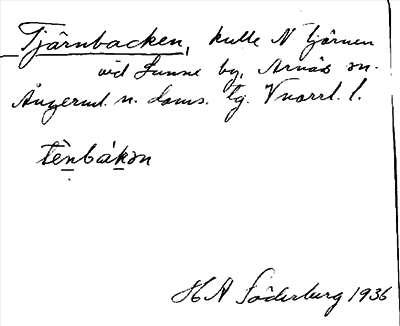 Tjärnbacken, kulle N tjärnen
vid Sunne by, Arnäs sn.
Ångerml. n. doms. tg. Vnorrl. l.
tènbákən
H A Söderburg 1936